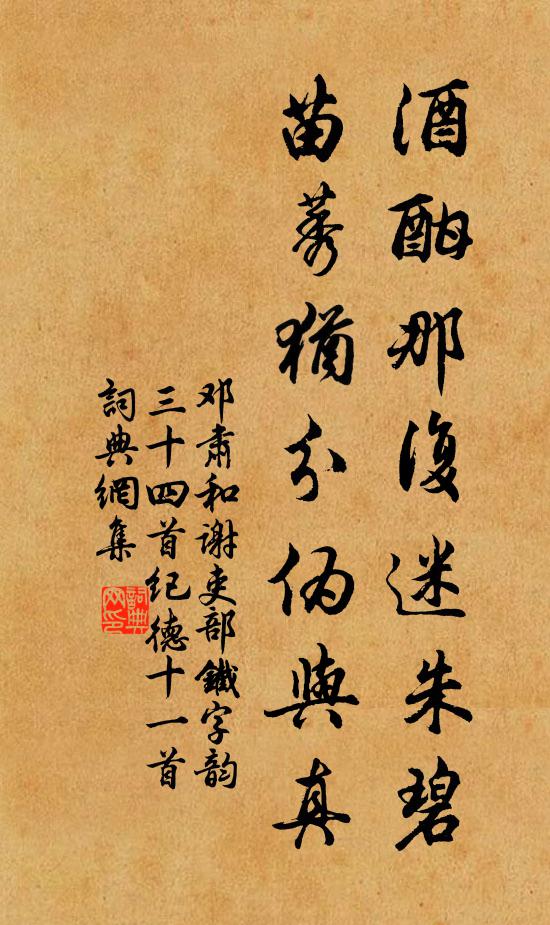 酒酣那復迷朱碧
苗莠猶分偽與真
邓肅和谢吏部鐵字韵
三十四首紀德十一首
詞典網集
詞典網印